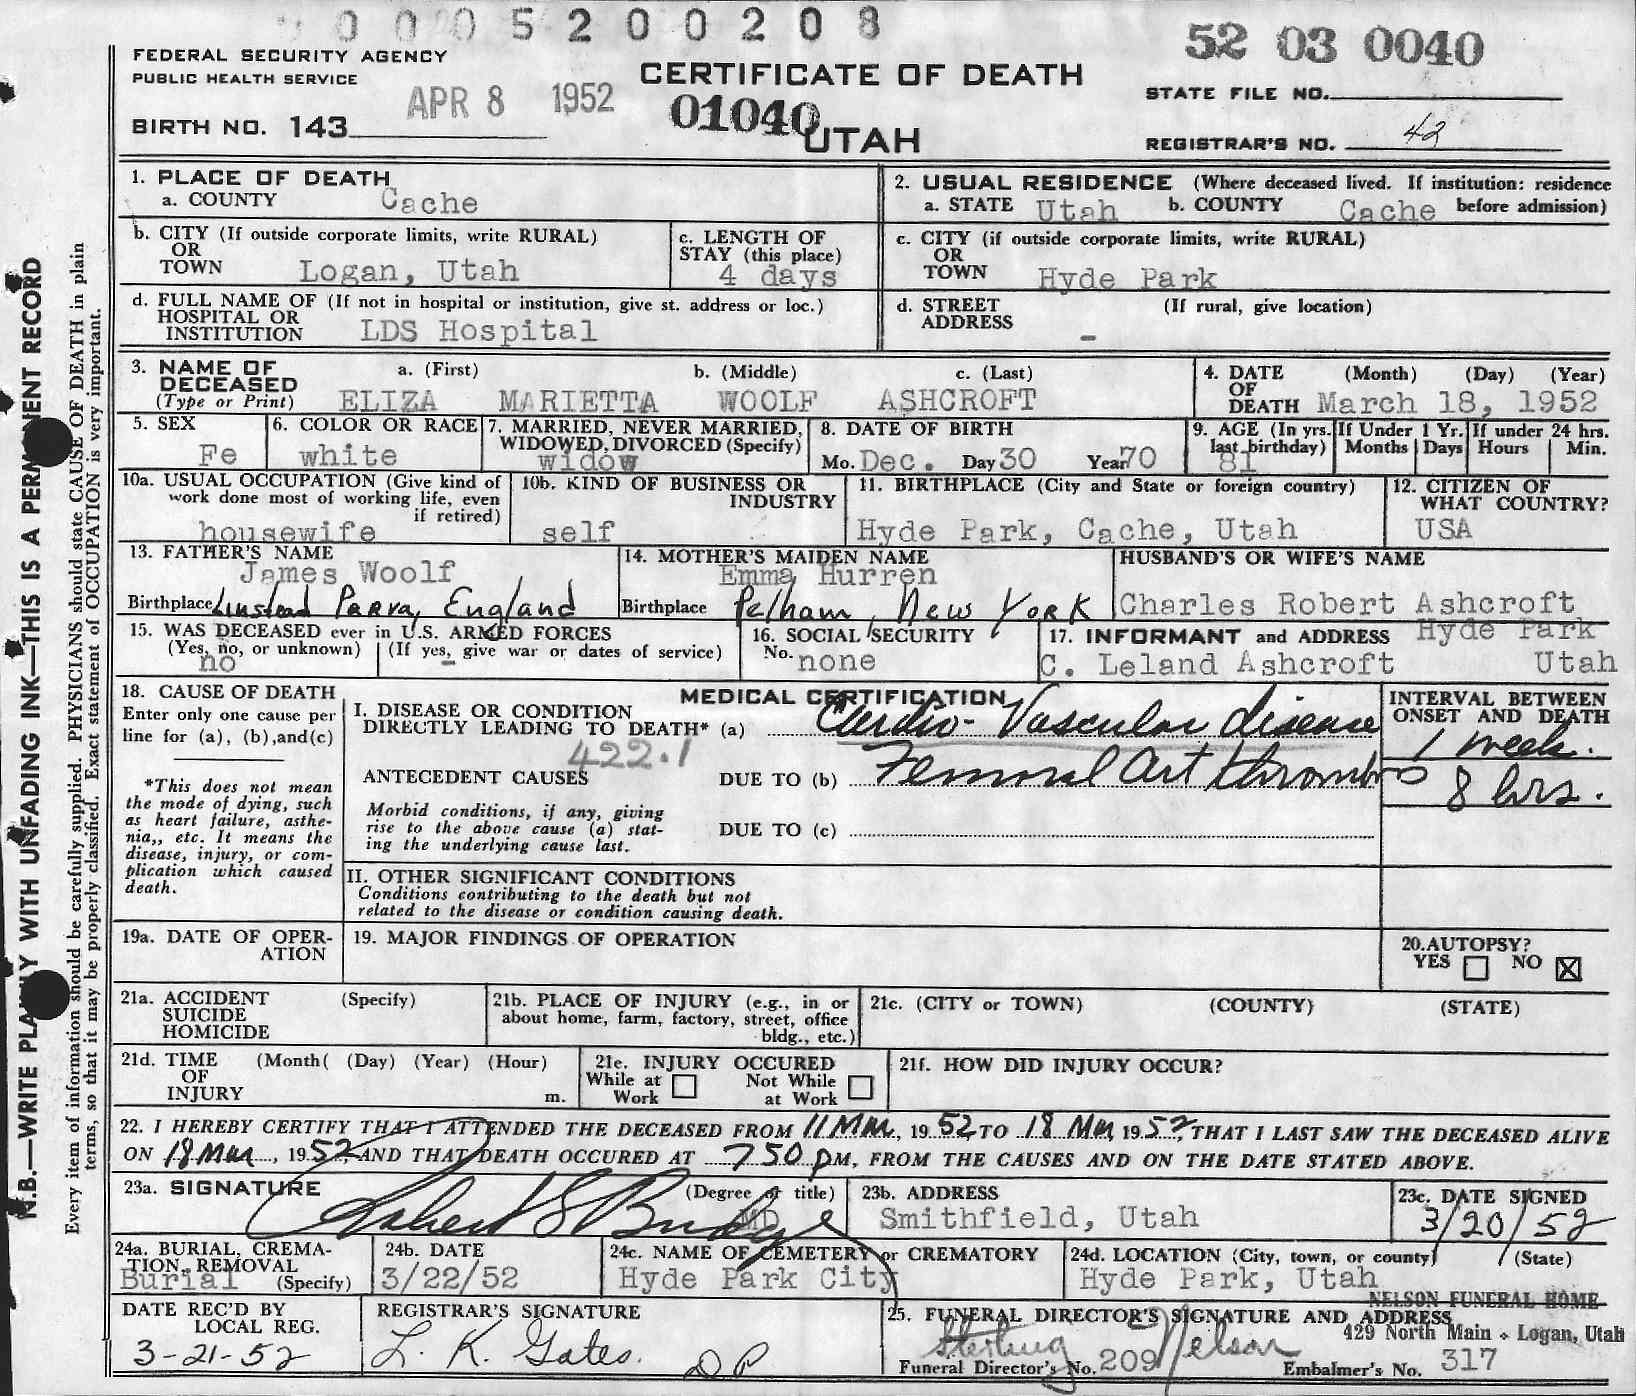 0005200208
52 03 0040
FEDERAL SECURITY AGENCY
PUBLIC HEALTH SERVICE
APR 8 1952
CERTIFICATE OF DEATH
01040
UTAH
STATE FILE NO.
BIRTH NO. 143
REGISTRAR'S NO. 42
1. PLACE OF DEATH
a. COUNTY Cache
2. USUAL RESIDENCE (Where deceased lived. If institution: residence
a. STATE Utah b. COUNTY Cache before admission)
b. CITY (If outside corporate limits, write RURAL)
OR
TOWN Logan, Utah
c. LENGTH OF
STAY (this place)
4 days
c. CITY (if outside corporate limits, write RURAL)
OR
TOWN Hyde Park
d. FULL NAME OF (If not in hospital or institution, give st. address or loc.)
HOSPITAL OR
INSTITUTION LDS Hospital
d. STREET (If rural, give location)
ADDRESS -
3. NAME OF a. (First) b. (Middle) c. (Last)
DECEASED
(Type or Print) ELIZA MARIETTA WOOLF ASHCROFT
4. DATE (Month) (Day) (Year)
OF
DEATH March 18, 1952
5. SEX
Fe
6. COLOR OR RACE
white
7. MARRIED, NEVER MARRIED,
WIDOWED, DIVORCED (Specify)
widow
8. DATE OF BIRTH
Mo. Dec. Day 30 Year 70
9. AGE (In yrs.
last birthday)
81
If Under 1 Yr.
Months Days
If under 24 hrs.
Hours Min.
10a. USUAL OCCUPATION (Give kind of
work done most of working life, even
if retired)
housewife
10b. KIND OF BUSINESS OR
INDUSTRY
self
11. BIRTHPLACE (City and State or foreign country)
Hyde Park, Cache, Utah
12. CITIZEN OF
WHAT COUNTRY?
USA
13. FATHER'S NAME
James Woolf
Birthplace Linstead Parva, England
14. MOTHER'S MAIDEN NAME
Emma Hurren
Birthplace Pelham, New York
HUSBAND'S OR WIFE'S NAME
Charles Robert Ashcroft
15. WAS DECEASED ever in U.S. ARMED FORCES
(Yes, no, or unknown) (If yes, give war or dates of service)
no -
16. SOCIAL SECURITY
No. none
17. INFORMANT and ADDRESS Hyde Park
C. Leland Ashcroft Utah
18. CAUSE OF DEATH
Enter only one cause per
line for (a), (b), and (c)
*This does not mean
the mode of dying, such
as heart failure, asthe-
nia,, etc. It means the
disease, injury, or com-
plication which caused
death.
MEDICAL CERTIFICATION
I. DISEASE OR CONDITION
DIRECTLY LEADING TO DEATH* (a) Cardio-Vascular disease
422.1
ANTECEDENT CAUSES DUE TO (b) Femoral Art thrombos
Morbid conditions, if any, giving
rise to the above cause (a) stat-
ing the underlying cause last.
DUE TO (c)
INTERVAL BETWEEN
ONSET AND DEATH
1 week.
8 hrs.
II. OTHER SIGNIFICANT CONDITIONS
Conditions contributing to the death but not
related to the disease or condition causing death.
19a. DATE OF OPER-
ATION
19. MAJOR FINDINGS OF OPERATION
20. AUTOPSY?
YES NO X
21a. ACCIDENT (Specify)
SUICIDE
HOMICIDE
21b. PLACE OF INJURY (e.g., in or
about home, farm, factory, street, office
bldg., etc.)
21c. (CITY or TOWN) (COUNTY) (STATE)
21d. TIME (Month( (Day) (Year) (Hour)
OF
INJURY m.
21e. INJURY OCCURED
While at Not While
Work at Work
21f. HOW DID INJURY OCCUR?
22. I HEREBY CERTIFY THAT I ATTENDED THE DECEASED FROM 11 Mar, 1952, TO 18 Mar 1952, THAT I LAST SAW THE DECEASED ALIVE
ON 18 Mar, 1952, AND THAT DEATH OCCURED AT 750 pM, FROM THE CAUSES AND ON THE DATE STATED ABOVE.
23a. SIGNATURE (Degree or title)
Robert S Budge MD
23b. ADDRESS
Smithfield, Utah
23c. DATE SIGNED
3/20/52
24a. BURIAL, CREMA-
TION, REMOVAL
Burial (Specify)
24b. DATE
3/22/52
24c. NAME OF CEMETERY or CREMATORY
Hyde Park City
24d. LOCATION (City, town, or county) (State)
Hyde Park, Utah
DATE REC'D BY
LOCAL REG.
3-21-52
REGISTRAR'S SIGNATURE
L. K. Gates. DP
NELSON FUNERAL HOME
25. FUNERAL DIRECTOR'S SIGNATURE AND ADDRESS
429 North Main • Logan, Utah
Sterling Nelson
Funeral Director's No. 209 Embalmer's No. 317
N.B.—WRITE PLAINLY WITH UNFADING INK—THIS IS A PERMANENT RECORD
Every item of information should be carefully supplied. PHYSICIANS should state CAUSE OF DEATH in plain
terms, so that it may be properly classified. Exact statement of OCCUPATION is very important.